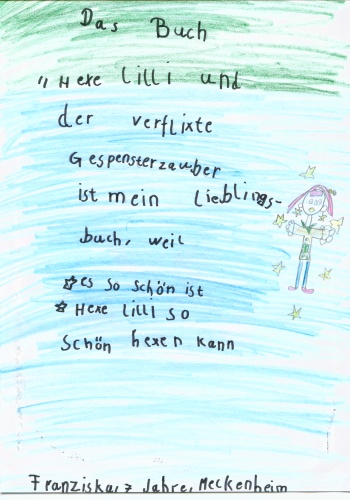 Das Buch
„Hexe Lilli und
der verflixte
Gespensterzauber
ist mein Lieblings-
buch, weil
☆ es so schön ist
☆ Hexe Lilli so
schön hexen kann
Franziska, 7 Jahre, Meckenheim